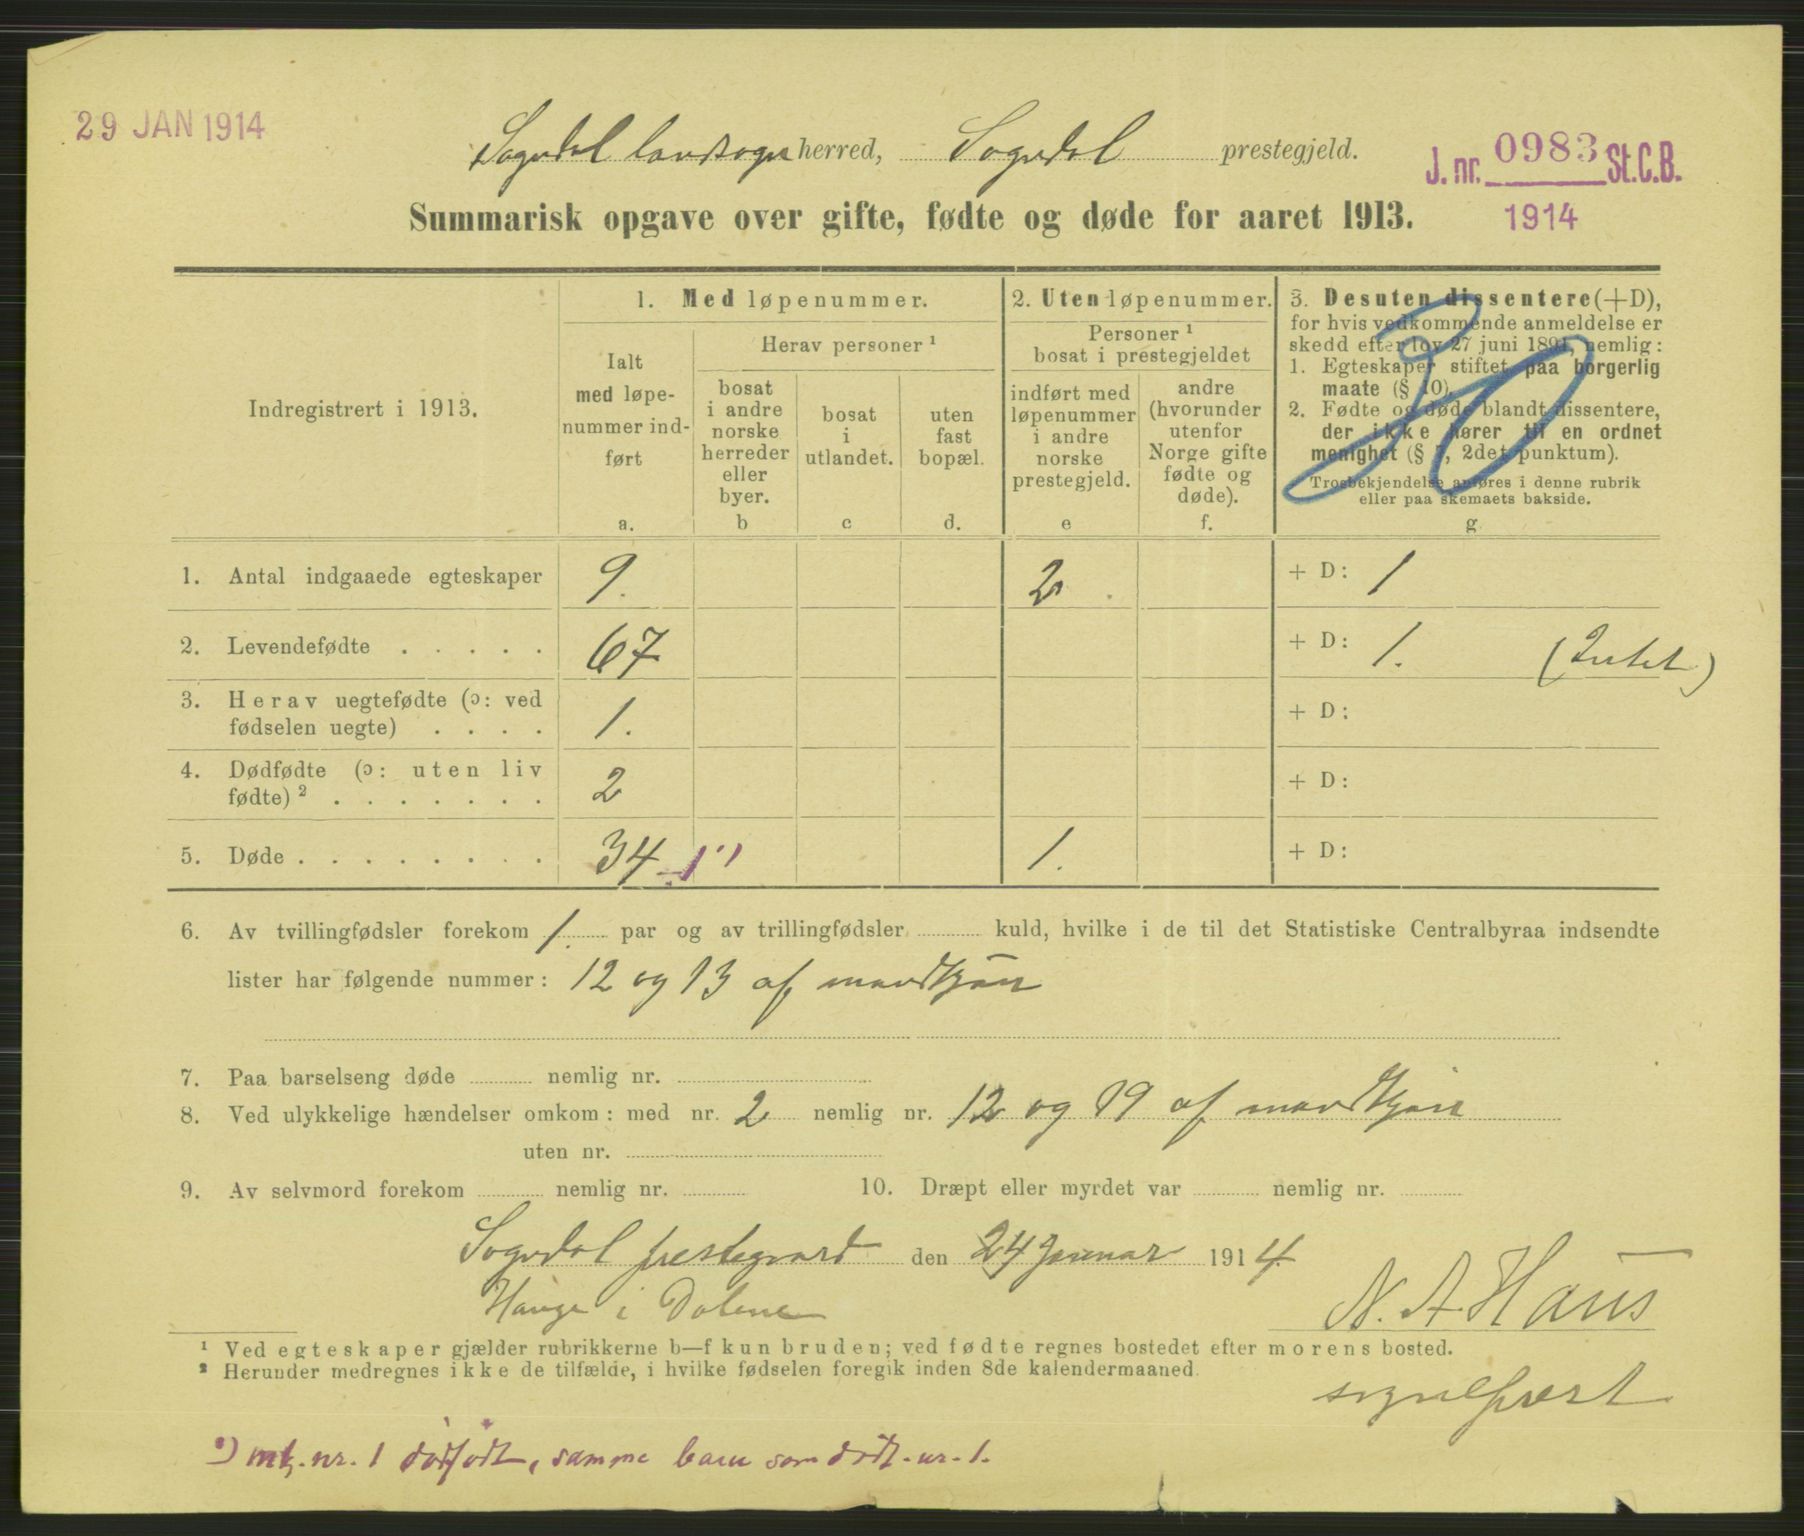 29 JAN 1914
Sogndal landsogn herred, Sogndal prestegjeld.
J. nr. 0983 St.C.B.
1914
Summarisk opgave over gifte, fødte og døde for aaret 1913.
Indregistrert i 1913.
1. Med løpenummer.
Ialt
med løpe-
nummer ind-
ført
a.
Herav personer ¹
bosat
i andre
norske
herreder
eller
byer.
b
bosat
i
utlandet.
c
uten
fast
bopæl.
d.
2. Uten løpenummer.
Personer ¹
bosat i prestegjeldet
indført med
løpenummer
i andre
norske
prestegjeld.
e
andre
(hvorunder
utenfor
Norge gifte
fødte og
døde).
f.
3. Desuten dissentere (+D),
for hvis vedkommende anmeldelse er
skedd efter lov 27 juni 1891, nemlig:
1. Egteskaper stiftet paa borgerlig
maate (§ 10).
2. Fødte og døde blandt dissentere,
der ikke hører til en ordnet
menighet (§ 7, 2det punktum).
Trosbekjendelse anføres i denne rubrik
eller paa skemaets bakside.
g.
1. Antal indgaaede egteskaper 9. 2 + D: 1
2. Levendefødte . . . . . 67 + D: 1. (Intet)
3. Herav uegtefødte (ɔ: ved
fødselen uegte) . . . . 1. + D:
4. Dødfødte (ɔ: uten liv
fødte) ² . . . . . . . 2 + D:
5. Døde . . . . . . . . 34 ÷1 ¹) 1. + D:
6. Av tvillingfødsler forekom 1. par og av trillingfødsler ...... kuld, hvilke i de til det Statistiske Centralbyraa indsendte
lister har følgende nummer: 12 og 13 af mandkjön
7. Paa barselseng døde ...... nemlig nr. ......
8. Ved ulykkelige hændelser omkom: med nr. 2 nemlig nr. 12 og 19 af mandkjön
uten nr. ......
9. Av selvmord forekom ...... nemlig nr. ...... 10. Dræpt eller myrdet var ...... nemlig nr. ......
Sogndal prestegaard den 24 Januar 1914.
Hauge i Dalene
N. A. Haus
sogneprest
¹ Ved egteskaper gjælder rubrikkerne b—f kun bruden; ved fødte regnes bostedet efter morens bosted.
² Herunder medregnes ikke de tilfælde, i hvilke fødselen foregik inden 8de kalendermaaned.
¹) mk. nr. 1 dødfødt, samme barn som dødf. nr. 1.